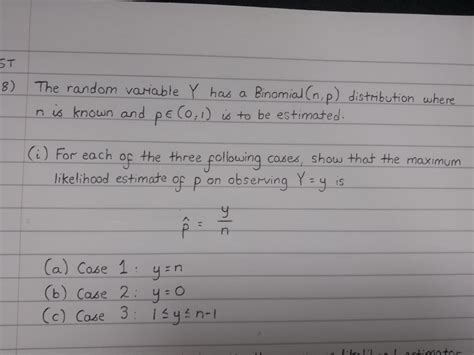 ST
8) The random variable Y has a Binomial(n,p) distribution where
n is known and p∈(0,1) is to be estimated.
(i) For each of the three following cases, show that the maximum
likelihood estimate of p on observing Y=y is
p̂ = y/n
(a) Case 1: y=n
(b) Case 2: y=0
(c) Case 3: 1≤y≤n-1